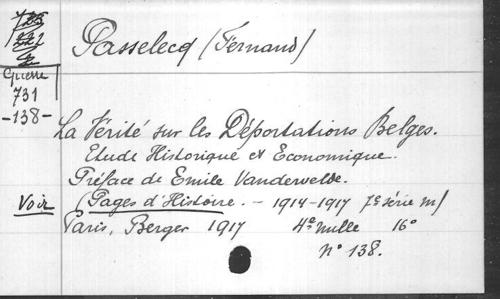 Passelecq (Fernand)
Guerre
731
-138-
La Vérité sur les Déportations Belges.
Etude Historique et Economique.
Préface de Emile Vandervelde.
Voir (Pages d'Histoire. - 1914-1917 7e série
Paris, Berger 1917 4e mille 16°
N° 138.